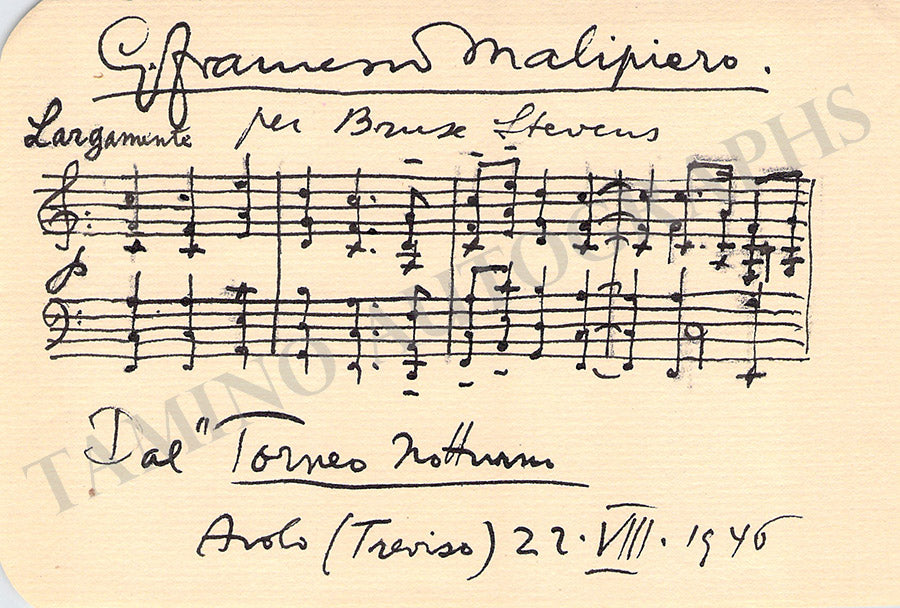 G. Francesco Malipiero.
per Bruce Stevens
Largamente
p
Dal "Torneo Notturno
Asolo (Treviso) 22. VIII. 1946
TAMINO AUTOGRAPHS